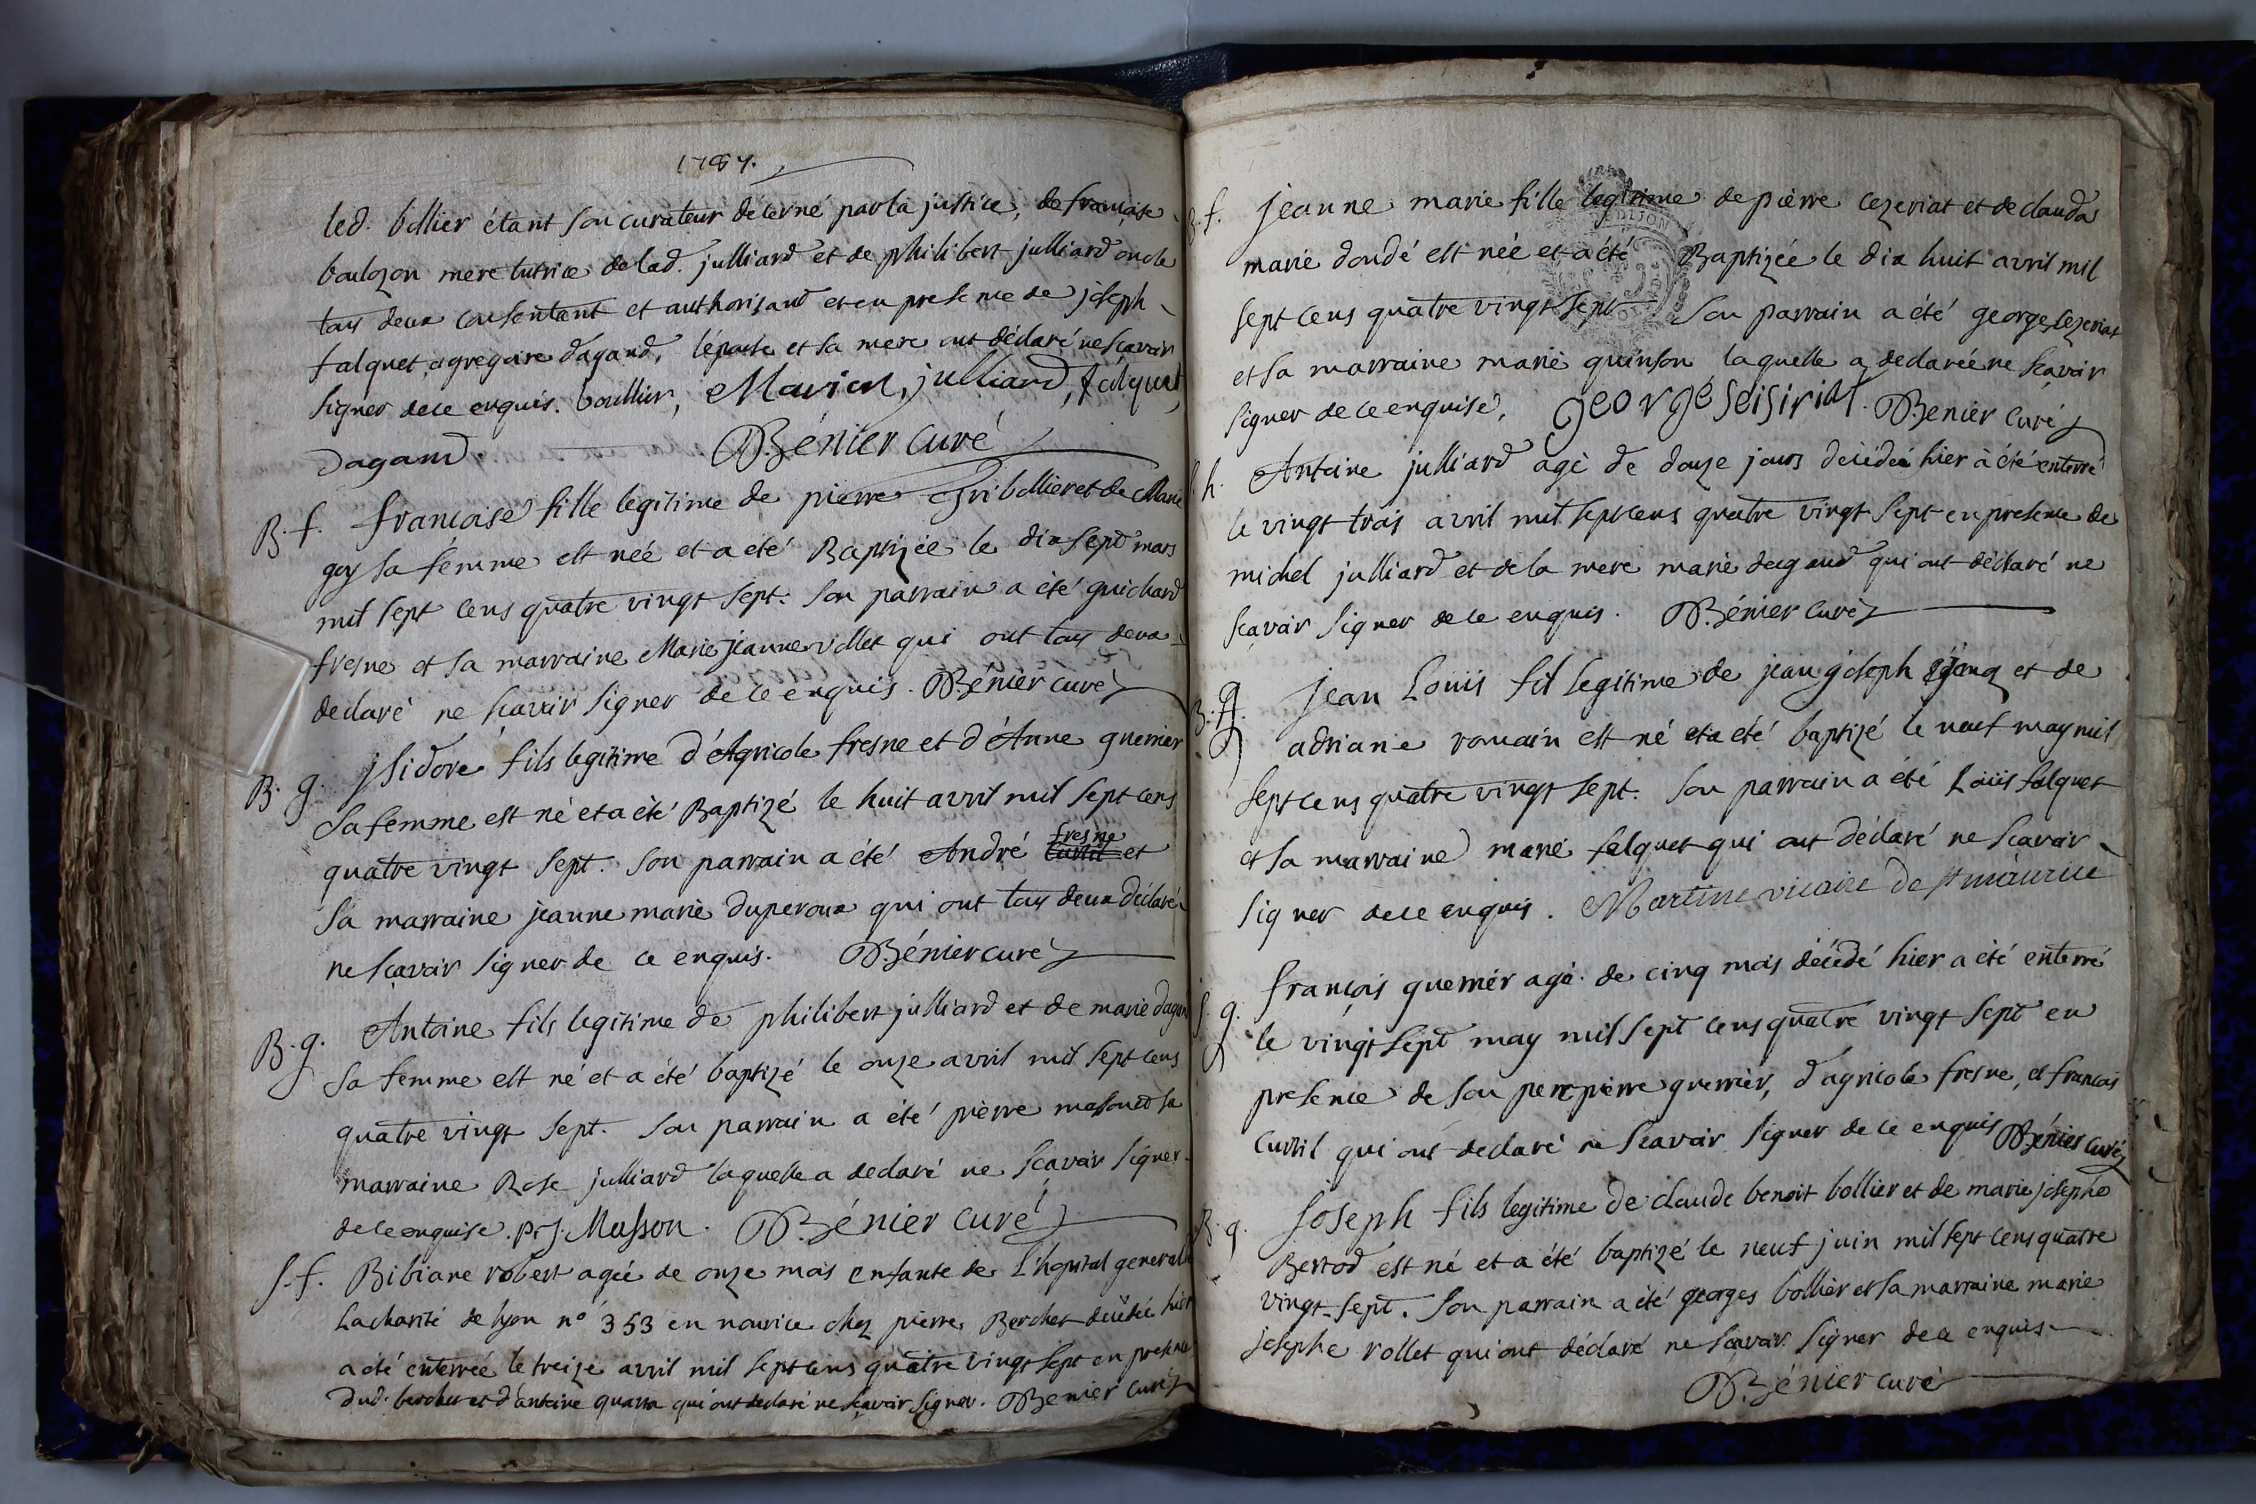 1787.
led. bollier étant son curateur decerné par la justice, de francoise
boulozon mere tutrice de lad. julliard et de philibert julliard oncle
tous deux consentant et authorisant et en presence de joseph
falquet, agregoire dagand, l'épouse et sa mere ont déclaré ne scavoir
signer de ce enquis. boullier, Marion, julliard, falquet,
Dagand. Bénier curé
B. f. francoise fille legitime de pierre bollier et de Marie
goy sa femme est née et a eté Baptizée le dix sept mars
mil sept cens quatre vingt sept. son parrain a été guichard
fresne et sa marraine Marie jeanne rollet qui ont tous deux
declaré ne scavoir signer de ce enquis. Bénier curé
B. g. jsidore fils legitime d'Agricole fresne et d'Anne guerrier
sa femme est né et a été Baptizé le huit avril mil sept cens
quatre vingt sept. son parrain a été André fresne et
sa marraine jeanne marie duperoux qui ont tous deux déclaré
ne sçavoir signer de ce enquis. Bénier curé
B. g. Antoine fils legitime de philibert julliard et de marie dagand
sa femme est né et a été baptizé le onze avril mil sept cens
quatre vingt sept. son parrain a été pierre masson et sa
marraine Rose julliard laquelle a declaré ne sçavoir signer
de ce enquise. p. j. Masson. Bénier curé
S. f. Bibiane robert agée de onze mois enfante de L'hopital general
La charité de lyon n° 353 en nourice chez pierre Berchet décédée hier
a été enterrée le treize avril mil sept cens quatre vingt sept en presence
dud. berchet et d'antoine quarra qui ont declaré ne sçavoir signer. Bénier curé
B. f. jeanne marie fille legitime de pierre cezeriat et de clauda
marie dondé est née et a été Baptizée le dix huit avril mil
sept cens quatre vingt sept son parrain a été george cezeriat
et sa marraine marie quinson laquelle a declarée ne sçavoir
signer de ce enquise. george seisiriat. Bénier curé
S. h. Antoine julliard agé de douze jours décédé hier a été enterré
le vingt trois avril mil sept cens quatre vingt sept en presence de
michel julliard et de la mere marie dagand qui ont déclaré ne
sçavoir signer de ce enquis. Bénier curé
B. g. jean Louis fil legitime de jean joseph et de
adriane romain est né et a été baptizé le neuf may mil
sept cens quatre vingt sept. son parrain a été Loüis falquet
et sa marraine marie falquet qui ont déclaré ne scavoir
signer de ce enquis. Martine vicaire de st maurice
S. g. françois guerrier agé de cinq mois décédé hier a été enterré
le vingt sept may mil sept cens quatre vingt sept en
presence de son pere pierre guerrier, d'agricole fresne, et francois
curtil qui ont declaré ne scavoir signer de ce enquis Bénier curé
B. g. joseph fils legitime de claude benoit bollier et de marie josephe
Bertod est né et a été baptizé le neuf juin mil sept cens quatre
vingt-sept. son parrain a été georges bollier et sa marraine marie
josephe rollet qui ont déclaré ne sçavoir signer de ce enquis
Bénier curé